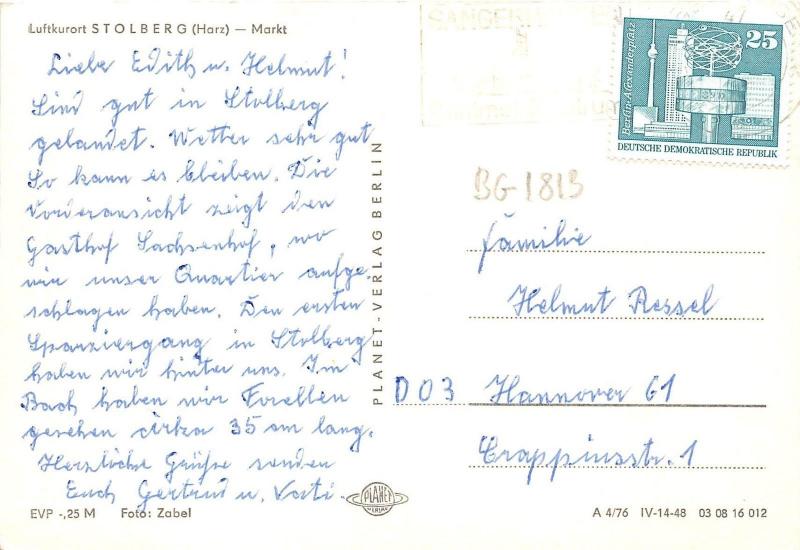 Luftkurort STOLBERG (Harz) — Markt
Liebe Edith u. Helmut!
Sind gut in Stolberg
gelandet. Wetter sehr gut
So kann es bleiben. Die
Vorderansicht zeigt den
Gasthof Sachsenhof, wo
wir unser Quartier aufge-
schlagen haben. Den ersten
Sparziergang in Stolberg
haben wir hinter uns. Im
Bach haben wir Forellen
gesehen cirka 35 cm lang.
Herzliche Grüße senden
Euch Gertrud u. Vati.
EVP -,25 M Foto: Zabel
PLANET-VERLAG BERLIN
PLANET
VERLAG
SANGERH
Berlin-Alexanderplatz
25
DEUTSCHE DEMOKRATISCHE REPUBLIK
BG-1813
Familie
Helmut Ressel
D03 Hannover 61
Crappiusstr. 1
A 4/76 IV-14-48 03 08 16 012